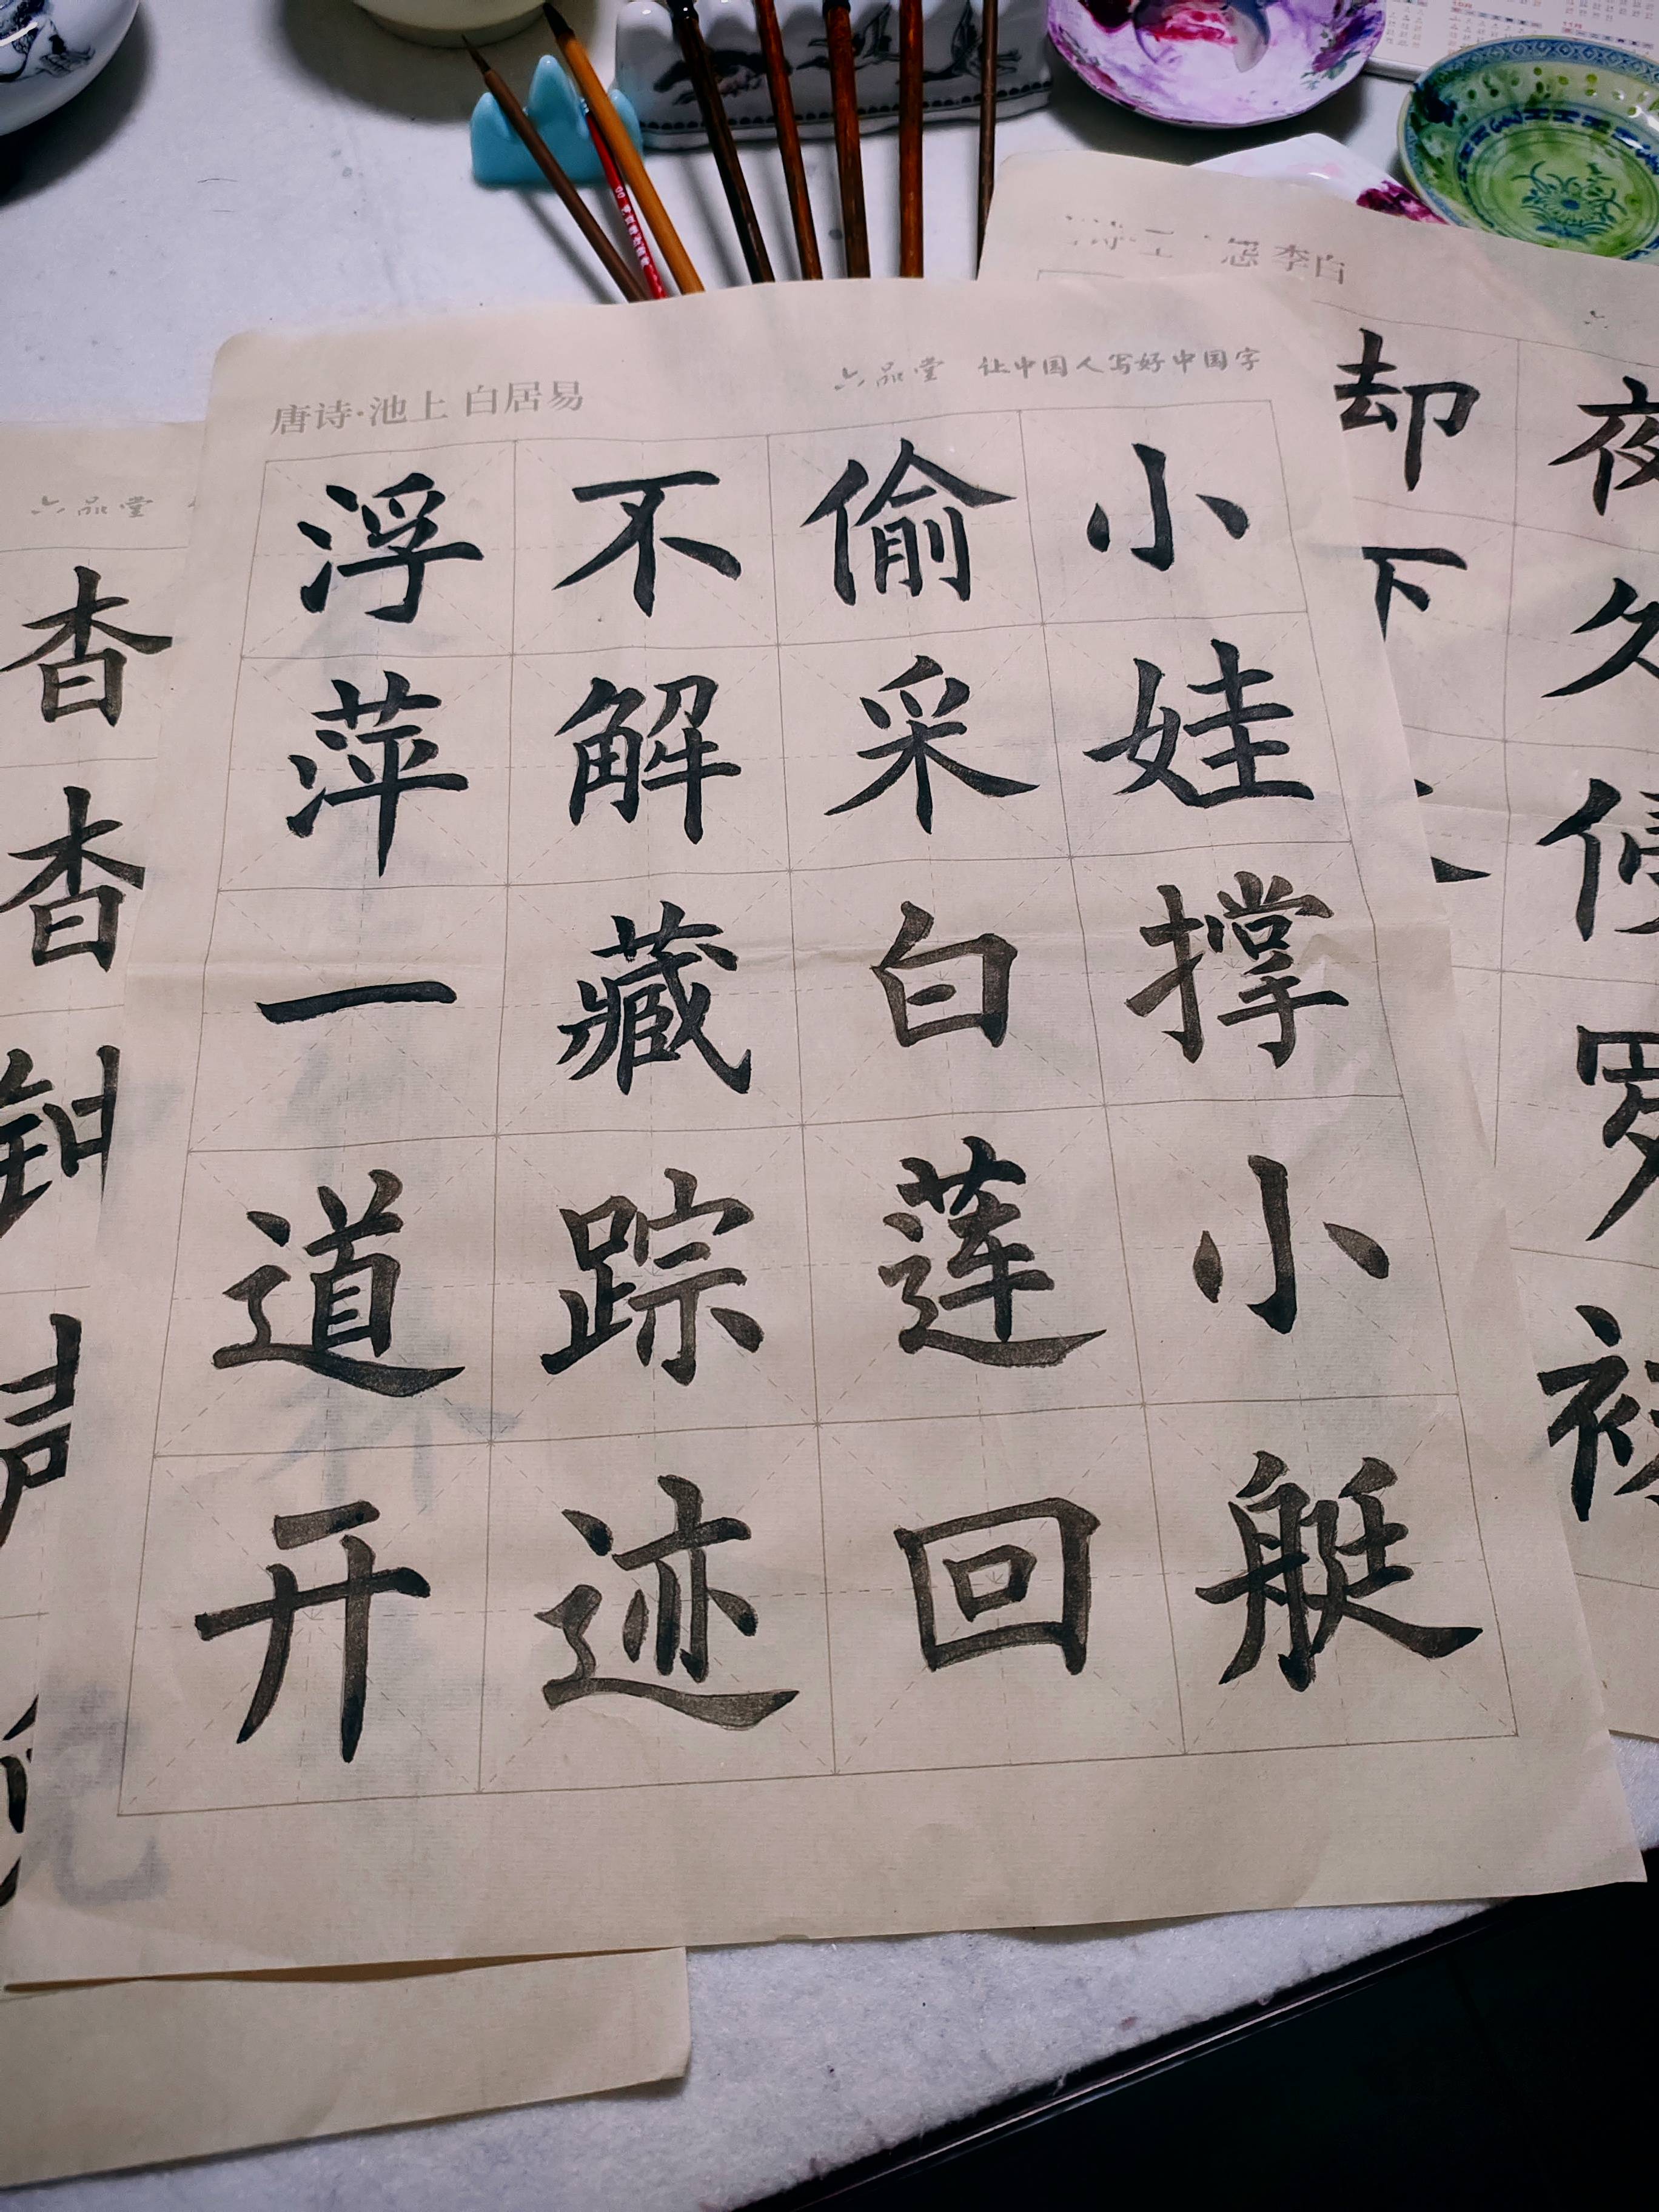 唐诗·池上 白居易
六品堂 让中国人写好中国字
小娃撑小艇
偷采白莲回
不解藏踪迹
浮萍一道开
怨 李白
夜久侵罗袜
却下
六品堂
杳杳钟声